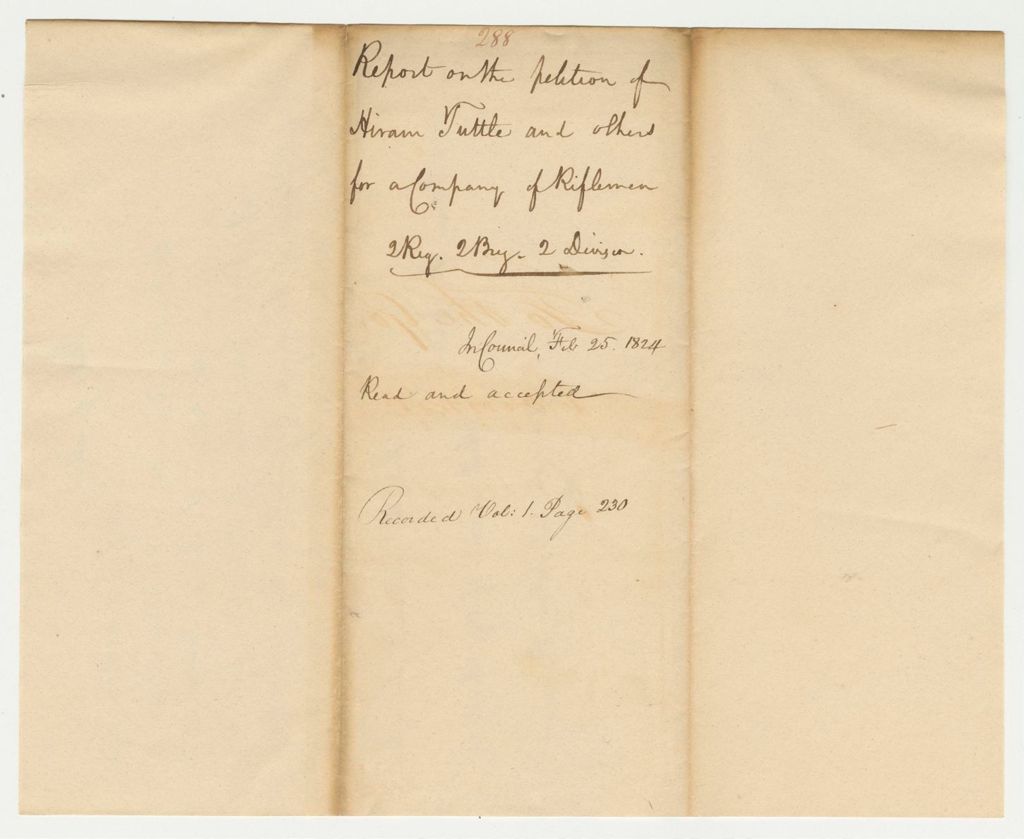 288
Report on the petition of
Hiram Tuttle and others
for a Company of Riflemen
2 Reg. 2 Brig. 2 Division.
In Council, Feb 25. 1824
Read and accepted
Recorded Vol: 1. Page 230